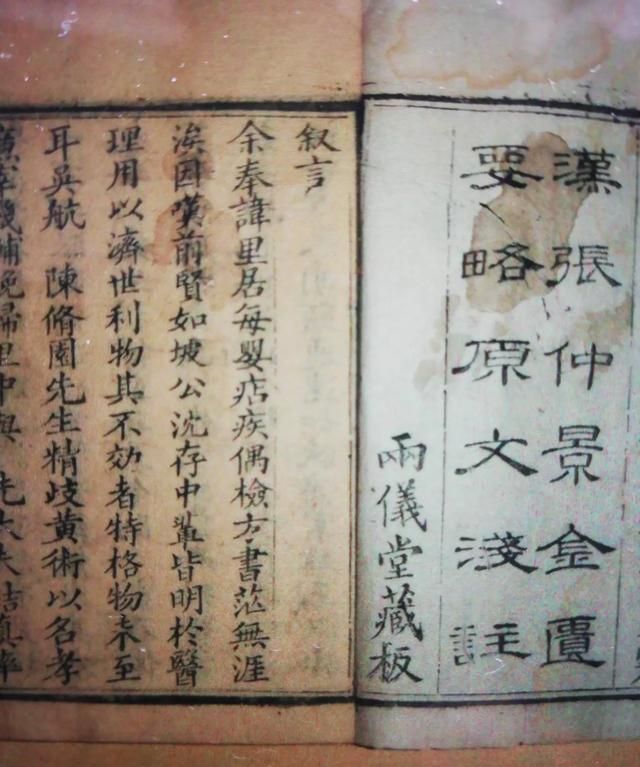 漢張仲景金匱
要略原文淺註
兩儀堂藏板
叙言
余奉諱里居每嬰痁疾偶檢方書茫無涯
涘因嘆前賢如坡公沈存中軰皆明於醫
理用以濟世利物其不効者特格物未至
耳吳航 陳脩園先生精歧黃術以名孝
廉宰畿輔晚歸里中與 先大夫結真率